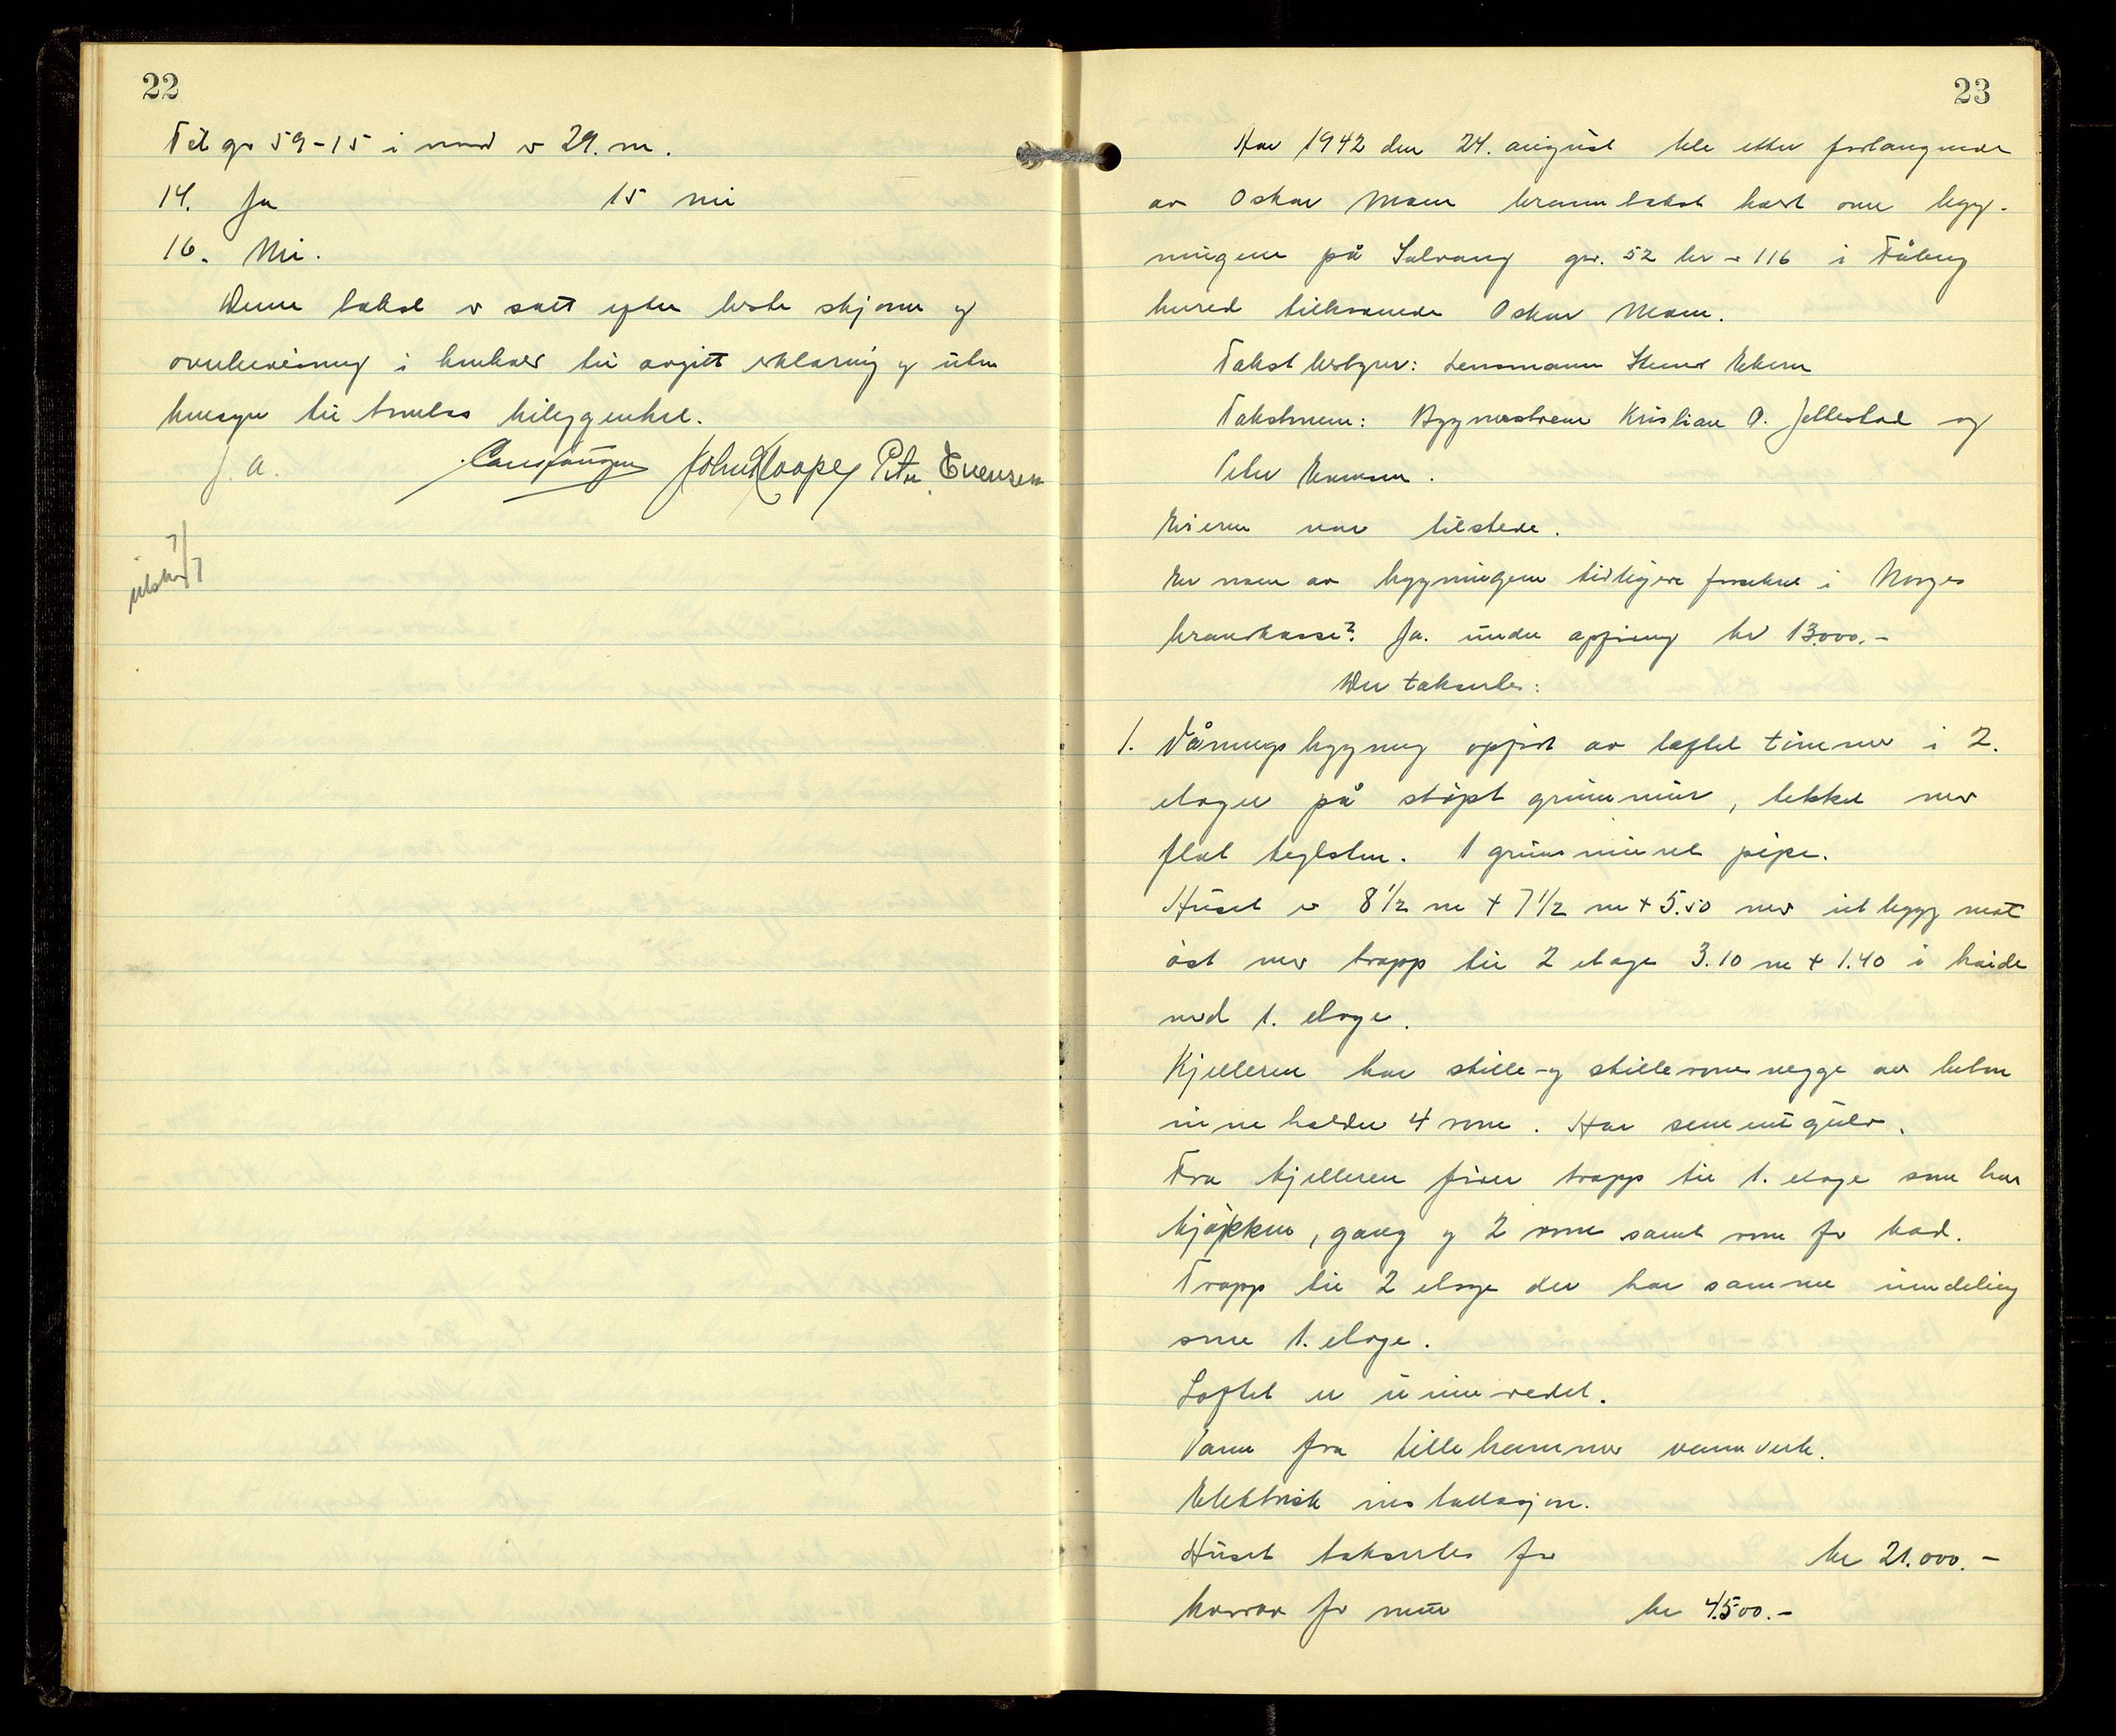 22
Til gr 59-15 i nord er 29. m.
14. Ja 15 nei
16. Nei.
Denne takst er satt efter beste skjønn og
overbevisning i henhold til avgitt erklæring og uten
hensyn til tomtens beliggenhet.
J. A. John Kloopey Peter Evensen
utskr 7/7
23
Aar 1942 den 24. august ble etter forlangende
av Oskar Moen branntakst holdt over byg-
ningene på Solvang gnr. 52 bnr 116 i Fåberg
herred tilhørende Oskar Moen.
Takst bestyrer: Lensmann Ekern
Takstmenn: Byggmestrene Kristian A. Jellestad og
Peter Evensen.
Eieren var tilstede.
Er noen av bygningene tidligere forsikret i Norges
brannkasse? Ja. under oppføring kr 13.000.-
Der takseres:
1. Våningsbygning oppført av laftet tømmer i 2.
etager på støpt grunnmur, tekket med
flat teglsten. 1 grunnmuret pipe.
Huset er 8 1/2 m + 7 1/2 m + 5.50 med utbygg mot
øst med trapp til 2 etage 3.10 m + 1.40 i høide
med 1. etage.
Kjelleren har skille- og skilleromsvegge av beton
inneholder 4 rom. Har sementgulv.
Fra kjelleren fører trapp til 1. etage som har
kjøkken, gang og 2 rom samt rom for bad.
Trapp til 2 etage der har samme inndeling
som 1. etage.
Loftet er uinnredet.
Vann fra Lillehammer vannverk.
Elektrisk installasjon.
Huset takseres for kr 21.000.-
hvorav for mur kr 4.500.-